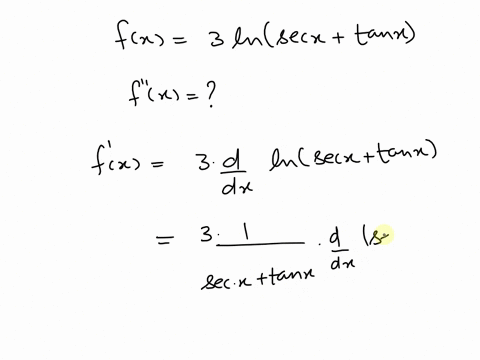 f(x) = 3 ln(secx + tanx)
f''(x) = ?
f'(x) = 3. d/dx ln(secx + tanx)
= 3. 1/(sec.x + tanx) . d/dx (s